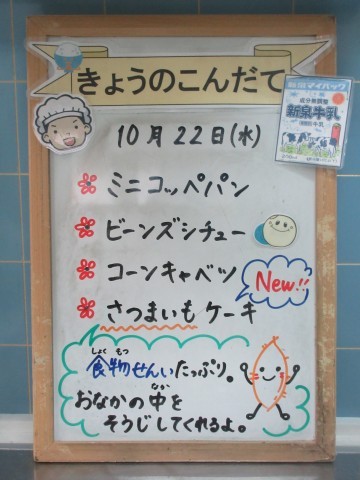 きょうのこんだて
10月22日(水)
ミニコッペパン
ビーンズシチュー
コーンキャベツ
New!!
さつまいもケーキ
食物せんいたっぷり。
しょくもつ
おなかの中を
なか
そうじしてくれるよ。
成分無調整
新泉牛乳